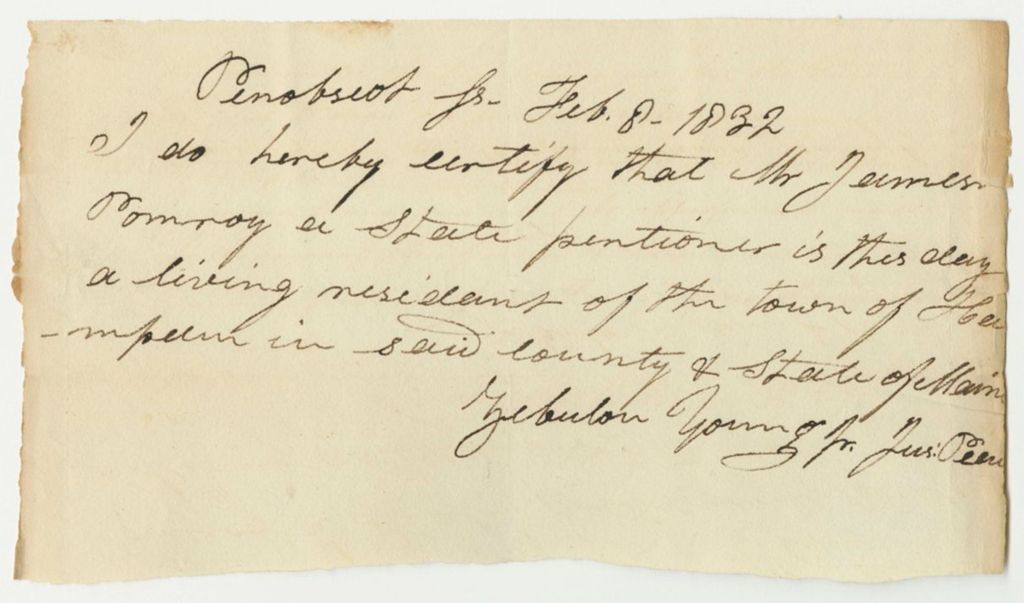 Penobscot Ss- Feb. 8- 1832
I do hereby certify that Mr James
Pomroy a State pentioner is this day
a living residant of the town of Ha
-mpden in said county & State of Maine
Zebulon Young Jr. Jus: Peac